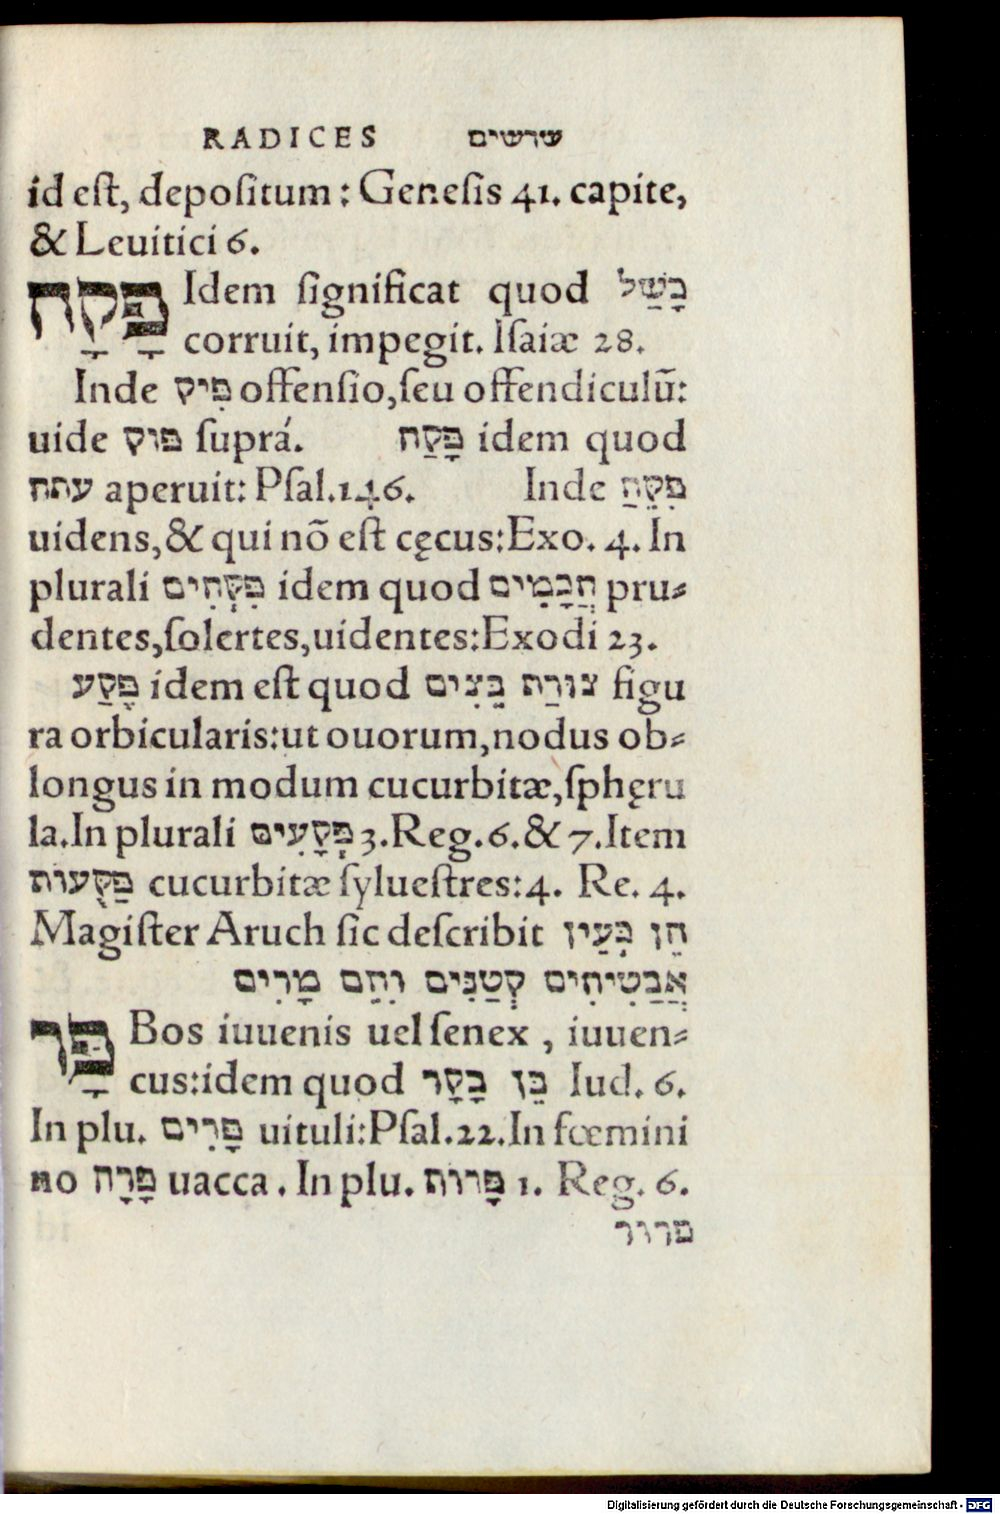 RADICES שרשים
id est, depositum : Geneſis 41. capite,
& Leuitici 6.
פָּקָח Idem ſignificat quod כָּשַׁל
corruit, impegit. Iſaiæ 28.
Inde פִּיק offenſio, ſeu offendiculũ:
uide פוק ſuprá. פָּקַח idem quod
פתח aperuit: Pſal. 146. Inde פִּקֵּחַ
uidens, & qui nõ eſt cęcus: Exo. 4. In
plurali פִּקְחִים idem quod חֲכָמִים pru⸗
dentes, ſolertes, uidentes: Exodi 23.
פֶּקַע idem eſt quod צוּרַת בֵּצִים figu
ra orbicularis: ut ouorum, nodus ob⸗
longus in modum cucurbitæ, ſphęru
la. In plurali פְּקָעִים 3. Reg. 6. & 7. Item
פַּקֻּעוֹת cucurbitæ ſylueſtres: 4. Re. 4.
Magiſter Aruch ſic deſcribit הֵן כְּעֵין
אֲבַטִּיחִים קְטַנִּים וְהֵם מָרִים
פָּר Bos iuuenis uel ſenex , iuuen⸗
cus: idem quod בֵּן בָּקָר Iud. 6.
In plu. פָּרִים uituli: Pſal. 22. In fœmini
no פָּרָה uacca . In plu. פָּרוֹת 1. Reg. 6.
פרור
Digitalisierung gefördert durch die Deutsche Forschungsgemeinschaft - DFG